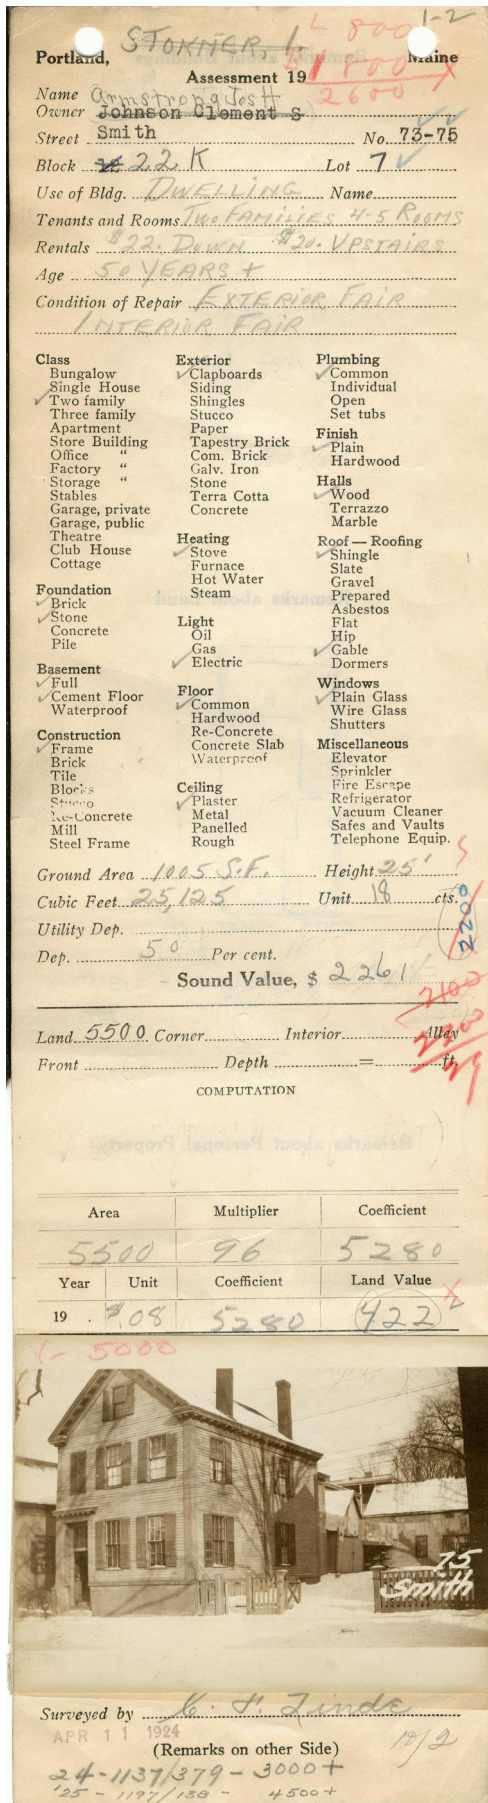 STOKNER, I.
L 800 1-2
Portland, Maine
B 1800
Assessment 19
2600
Name Armstrong Jos H
Owner Johnson Clement S
Street Smith No. 73-75
Block 22 K Lot 7
Use of Bldg. DWELLING Name
Tenants and Rooms TWO FAMILIES 4-5 ROOMS
Rentals $22. DOWN $20. UPSTAIRS
Age 50 YEARS +
Condition of Repair EXTERIOR FAIR
INTERIOR FAIR
Class
Bungalow
Single House
✓ Two family
Three family
Apartment
Store Building
Office "
Factory "
Storage "
Stables
Garage, private
Garage, public
Theatre
Club House
Cottage
Foundation
✓ Brick
✓ Stone
Concrete
Pile
Basement
✓ Full
✓ Cement Floor
Waterproof
Construction
✓ Frame
Brick
Tile
Blocks
Stucco
Re-Concrete
Mill
Steel Frame
Exterior
✓ Clapboards
Siding
Shingles
Stucco
Paper
Tapestry Brick
Com. Brick
Galv. Iron
Stone
Terra Cotta
Concrete
Heating
✓ Stove
Furnace
Hot Water
Steam
Light
Oil
✓ Gas
✓ Electric
Floor
✓ Common
Hardwood
Re-Concrete
Concrete Slab
Waterproof
Ceiling
✓ Plaster
Metal
Panelled
Rough
Plumbing
✓ Common
Individual
Open
Set tubs
Finish
✓ Plain
Hardwood
Halls
✓ Wood
Terrazzo
Marble
Roof — Roofing
✓ Shingle
Slate
Gravel
Prepared
Asbestos
Flat
Hip
✓ Gable
Dormers
Windows
✓ Plain Glass
Wire Glass
Shutters
Miscellaneous
Elevator
Sprinkler
Fire Escape
Refrigerator
Vacuum Cleaner
Safes and Vaults
Telephone Equip.
Ground Area 1005 S.F. Height 25'
Cubic Feet 25,125 Unit 18 cts.
2200
Utility Dep.
Dep. 50 Per cent.
Sound Value, $ 2261
2100
Land 5500 Corner Interior Alley
Front Depth = ft.
COMPUTATION
Area Multiplier Coefficient
5500 96 5280
Year Unit Coefficient Land Value
19 . $.08 5280 422
V- 5000
75
Smith
Surveyed by C. F. Linde
APR 11 1924
(Remarks on other Side) 10/2
24-1137/379 - 3000+
'25 - 1197/138 - 4500+